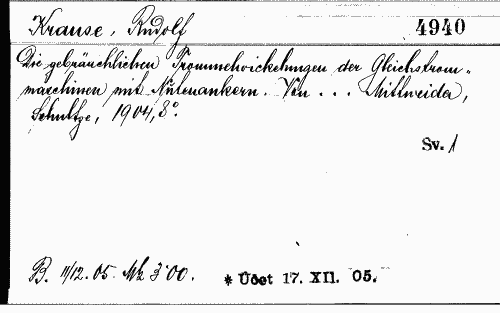 Krause, Rudolf
4940
Die gebräuchlichen Trommelwickelungen der Gleichstrom-
maschinen mit Nutenankern. Von . . . Mittweida,
Schultze, 1904, 8°.
Sv. 1
B. 11/12. 05. Mk 3.00.
* Účet 17. XII. 05.